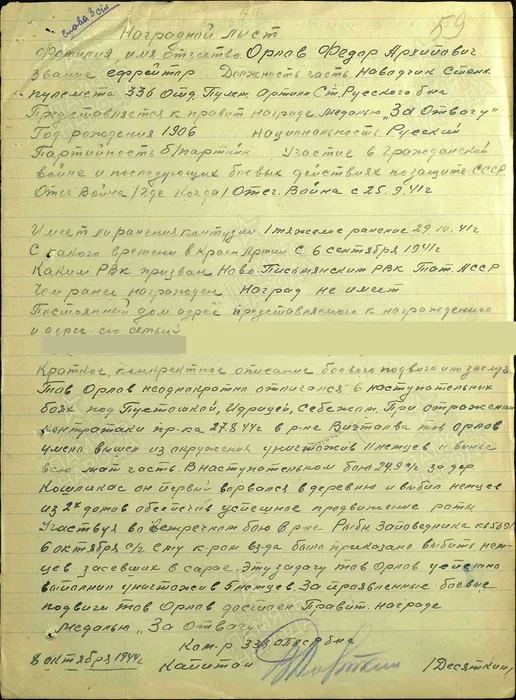 слава 3 ст
59
Наградной Лист
Фамилия, имя отчество Орлов Федор Архипович
Звание ефрейтор Должность часть Наводчик Станк.
пулемета 336 Отд. Пулем. Артил. Ст. Русского б-на
Представляется к правит награде Медалью „За Отвагу"
Год рождения 1906 Национальность Русский
Партийность б/партийн Участие в Гражданской
войне и последующих боевых действиях по защите СССР
Отеч Война /где когда/ Отеч. Война с 25.9.41г
Имеет ли ранения контузии 1 тяжелое ранение 29.10.41г
С какого времени в Красн Армии С 6 сентября 1941г
Каким РВК призван Ново-Письмянским РВК Тат. АССР
Чем ранее награжден Наград не имеет
Постоянный дом адрес представляемого к награждению
и адрес его семьи
Краткое, конкретное описание боевого подвига или заслуг
Тов Орлов неоднократно отличался в наступательных
боях под Пустошкой, Идрицей, Себежом. При отражении
контратаки пр-ка 27.8.44г в р-не Виэтова тов Орлов
умело вышел из окружения уничтожив 11 немцев и вынес
всю мат часть. В наступательном бою 24.9 с/г за дер
Кошликас он первый ворвался в деревню и выбил немцев
из 2х домов обеспечив успешное продвижение роты
Участвуя во встречном бою в р-не Рыбн. Заповедника
6 октября с/г ему к-ром вз-да было приказано выбить нем-
цев засевших в сарае. Эту задачу тов Орлов успешно
выполнил уничтожив 5 немцев. За проявленные боевые
подвиги тов Орлов достоин Правит. награде
Медалью „За Отвагу"
Ком-р 336 ОПАБ
8 октября 1944г Капитан /Десяткин/